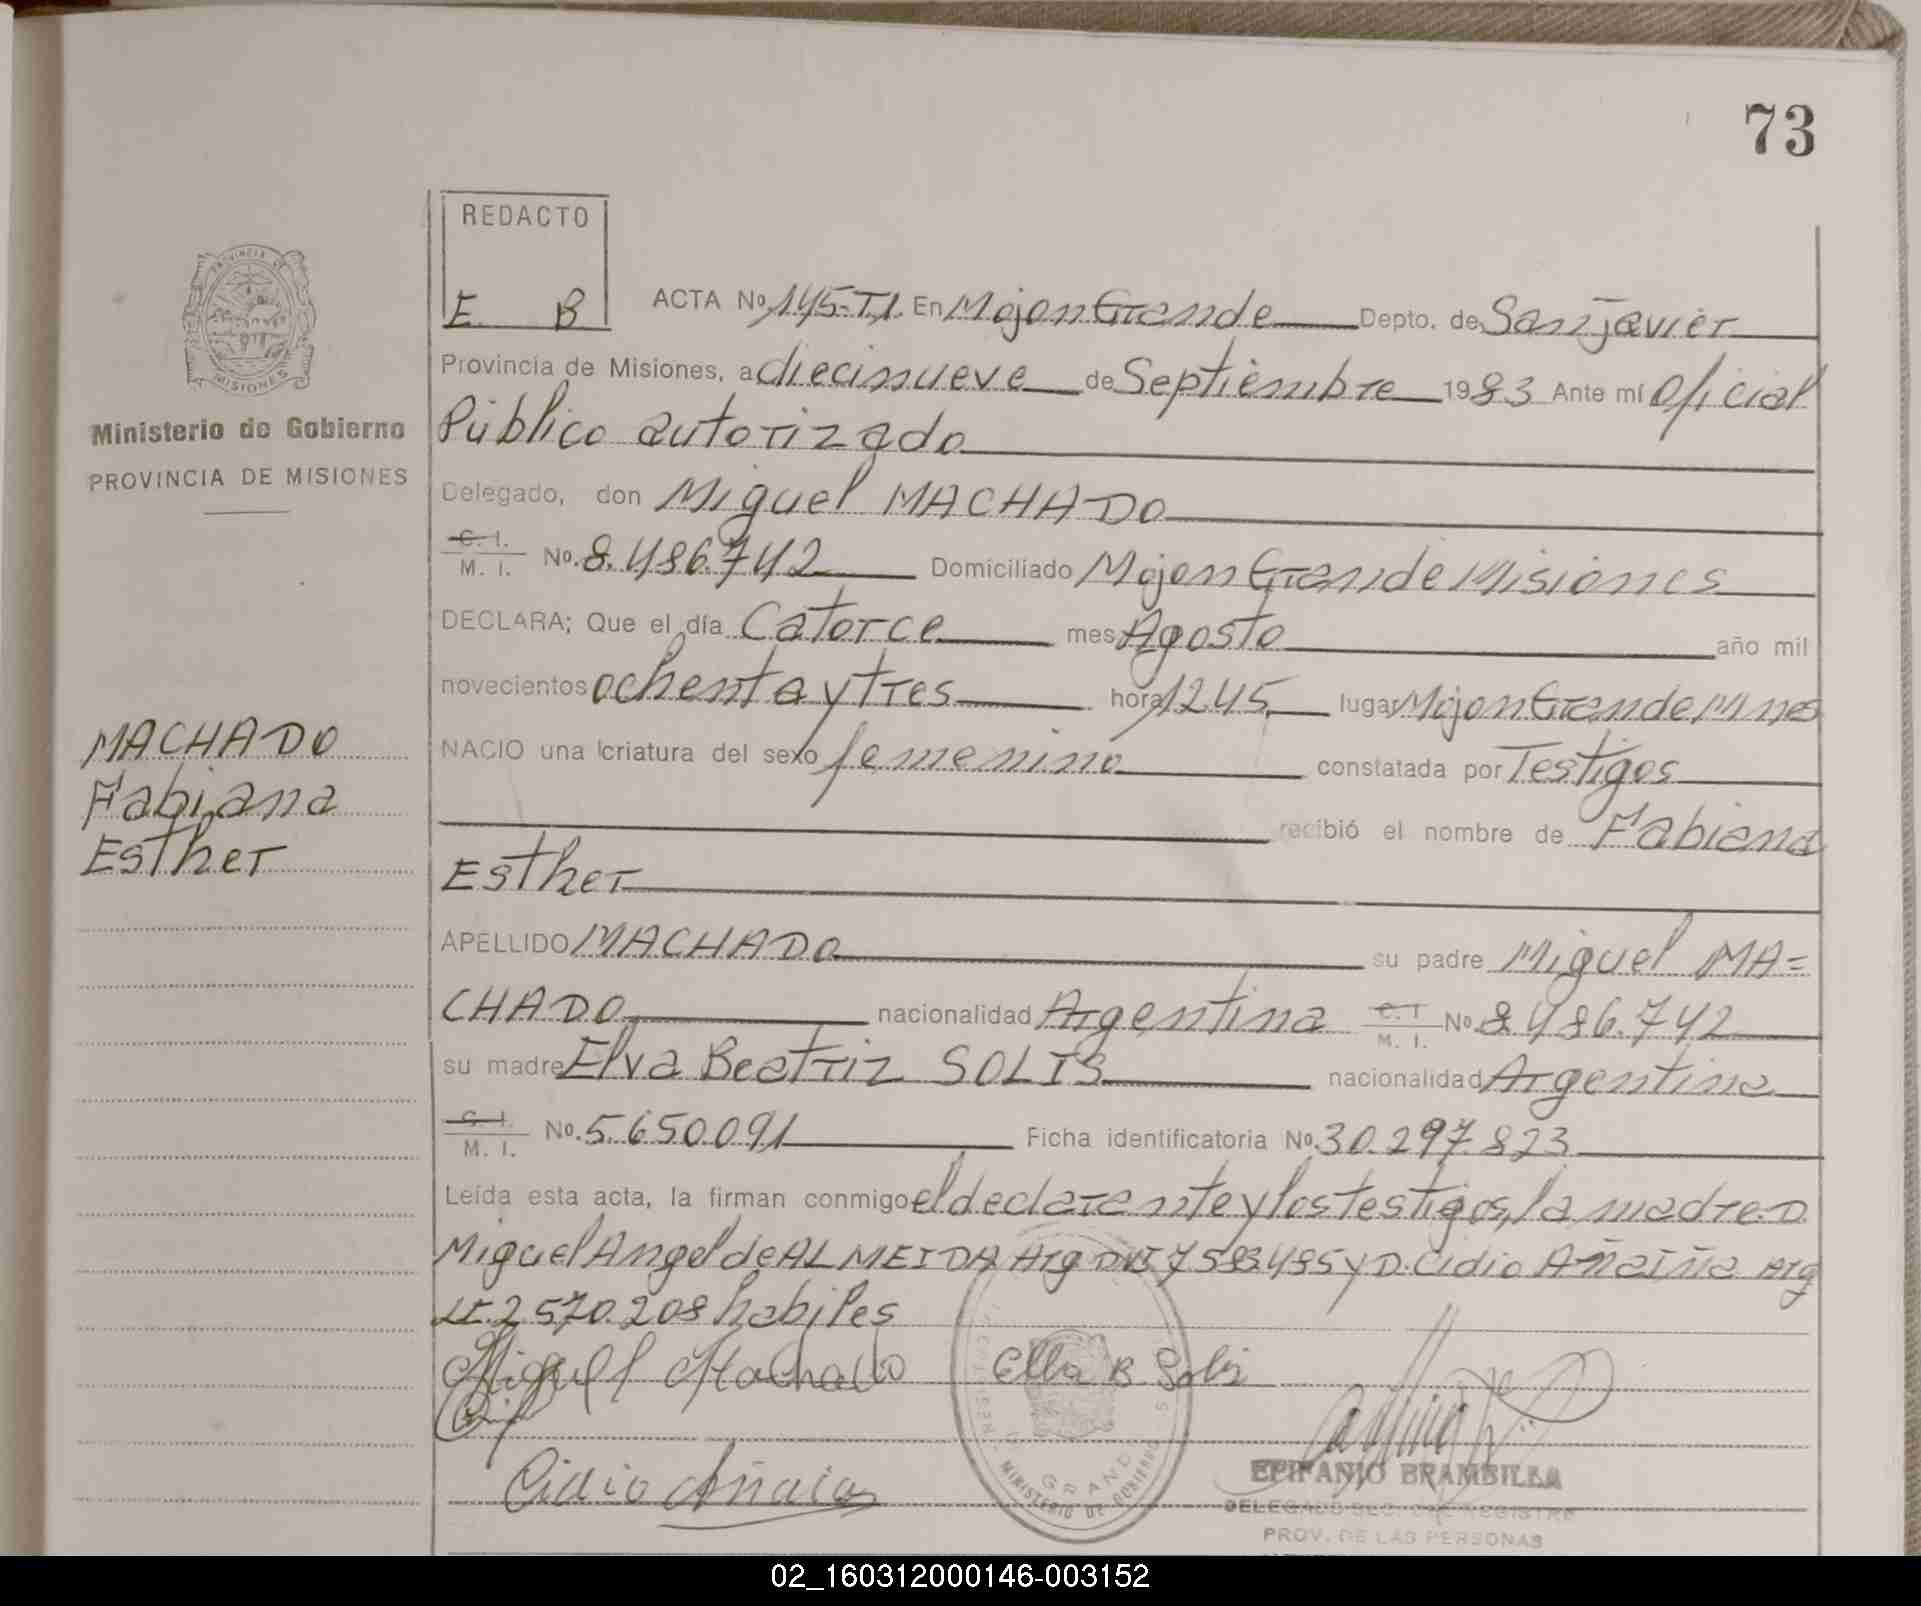 73
REDACTO
E. B
PROVINCIA DE
MISIONES
Ministerio de Gobierno
PROVINCIA DE MISIONES
MACHADO
Fabiana
Esther
ACTA No. 145-T1. En Mojon Grande Depto. de San Javier
Provincia de Misiones, a diecinueve de Septiembre 1983 Ante mí Oficial
Público autorizado
Delegado, don Miguel MACHADO
C. I.
M. I. No. 8.486.742 Domiciliado Mojon Grande Misiones
DECLARA; Que el día Catorce mes Agosto año mil
novecientos ochenta y tres hora 12.45 lugar Mojon Grande Mnes
NACIO una criatura del sexo femenino constatada por Testigos
recibió el nombre de Fabiana
Esther
APELLIDO MACHADO su padre Miguel MA=
CHADO nacionalidad Argentina C. I. M. I. No. 8.486.742
su madre Elva Beatriz SOLIS nacionalidad Argentina
C. I.
M. I. No. 5.650.091 Ficha identificatoria No. 30.297.823
Leída esta acta, la firman conmigo el declarante y los testigos, la madre. D.
Miguel Angel de ALMEIDA Arg DNI 7583485 y D. Cidio Añaiña Arg
LE. 2.570.208 habiles
Miguel Machado Elba B. Solis
Cidio Añaia
GRANDE
MINISTERIO DE GOBIERNO
EPIFANIO BRAMBILLA
DELEGADO SEC. DEL REGISTRO
PROV. DE LAS PERSONAS
02_160312000146-003152